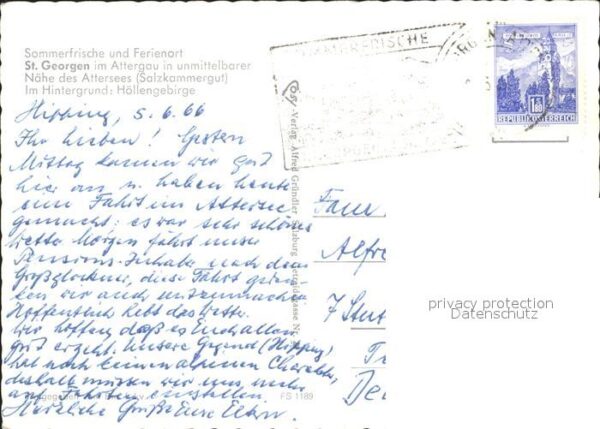 Sommerfrische und Ferienort
St. Georgen im Attergau in unmittelbarer
Nähe des Attersees (Salzkammergut)
Im Hintergrund: Höllengebirge
Hipping, 5.6.66
Ihr Lieben! Gestern
Mittag kamen wir gut
hier an u. haben heute
eine Fahrt im Attersee
gemacht: es war sehr schönes
Wetter. Morgen fährt unser
Pensions-Inhaber nach dem
Großglockner, diese Fahrt
wir auch mitzumachen
Hoffentlich hält das Wetter.
Wir hoffen daß es Euch allen
gut ergeht. Unsere Gegend (Hipping)
hat noch keinen alpinen Charakter,
deshalb müssen wir uns mehr
auf Fahrten einstellen.
Herzliche Grüße Eure Eltern.
FS 1189
Verlag Alfred Gründler Salzburg
SOMMERFRISCHE
1.80
REPUBLIK ÖSTERREICH
Frau
Alfre
7 Stut
privacy protection
Datenschutz